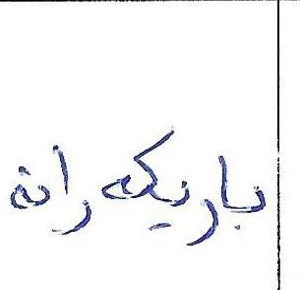 باریکه رانه